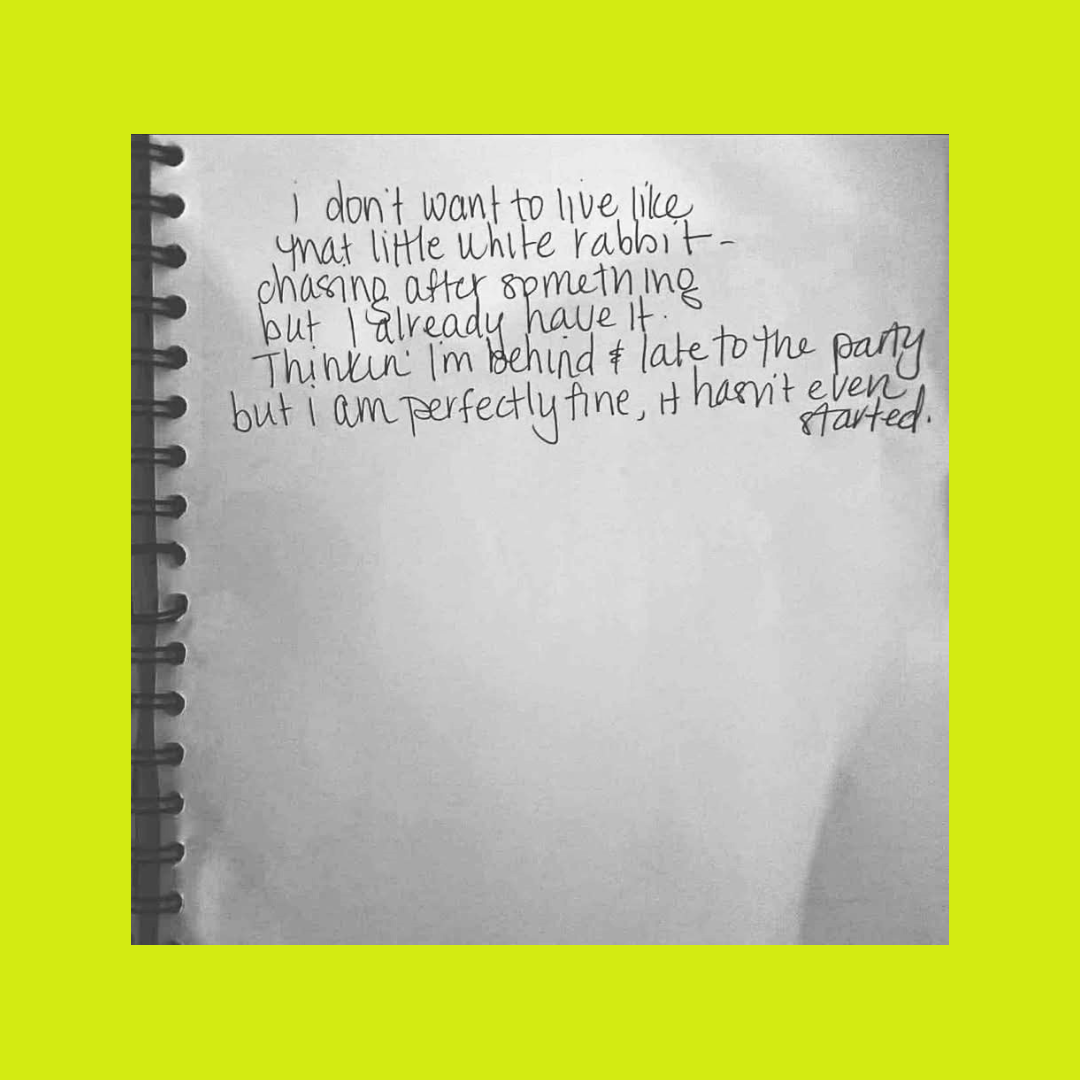 i don't want to live like
that little white rabbit -
chasing after something
but I already have it.
Thinkin' I'm behind & late to the party
but i am perfectly fine, it hasn't even
started.